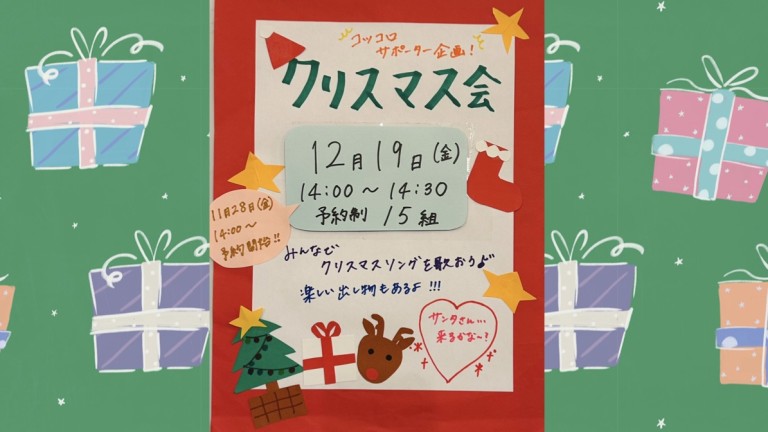 コッコロ
サポーター企画!
クリスマス会
12月19日(金)
14:00～14:30
予約制 15組
11月28日(金)
14:00～
予約開始!!
みんなで
クリスマスソングを歌おう♪
楽しい出し物もあるよ!!!
サンタさん…
来るかな～?